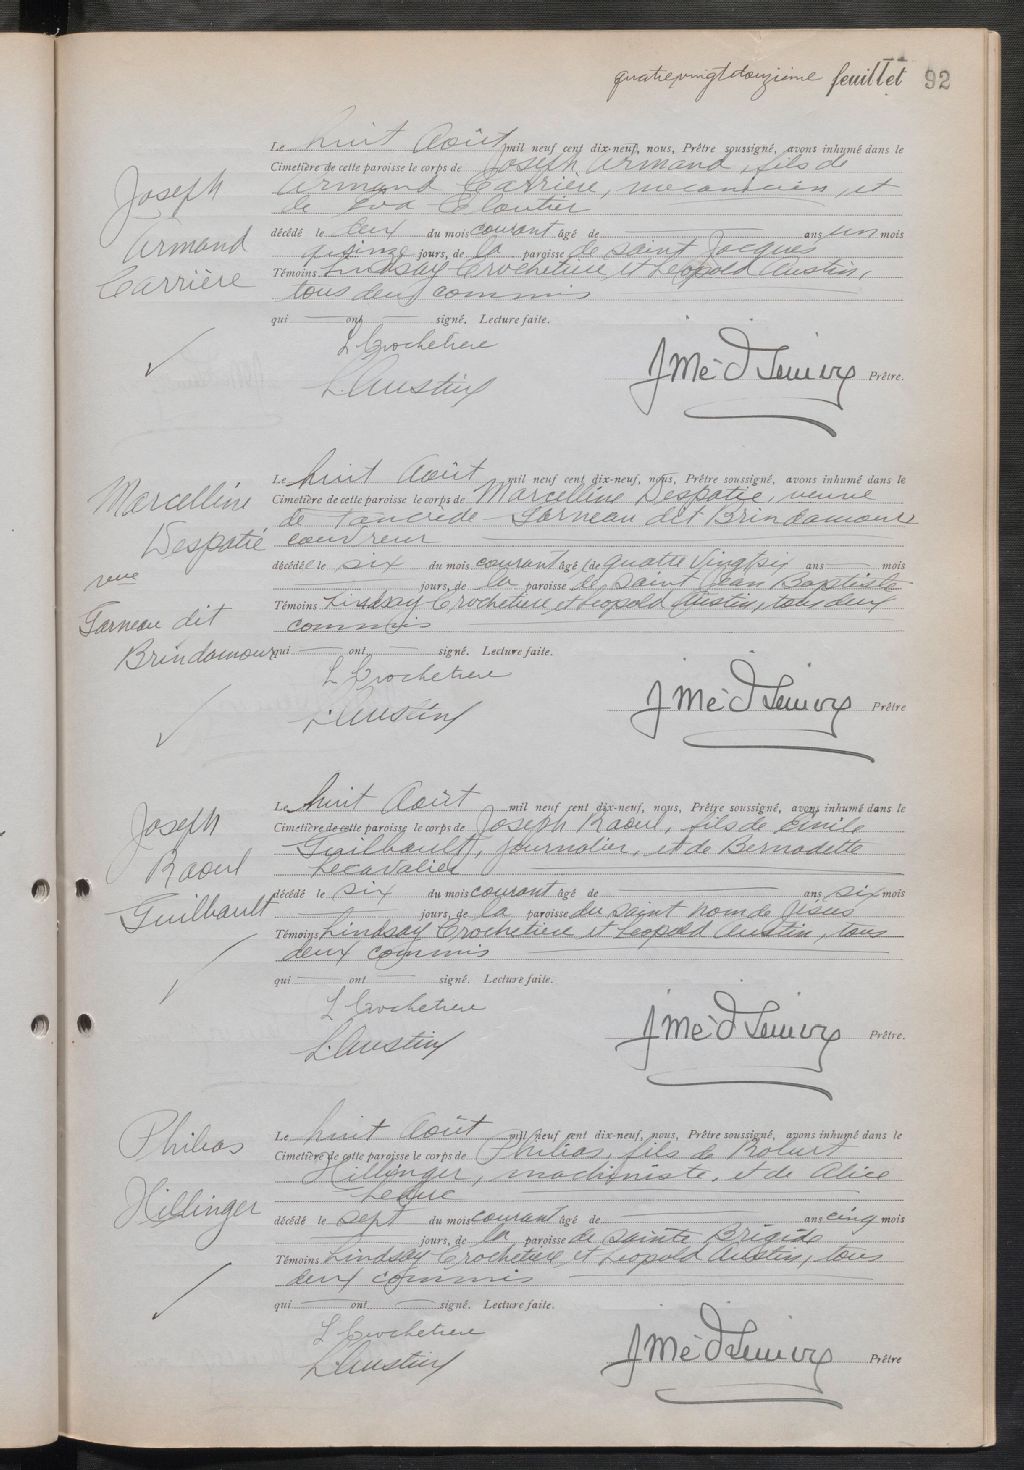 quatrevingtdouzième feuillet 92
Le huit Août mil neuf cent dix-neuf, nous, Prêtre soussigné, avons inhumé dans le
Cimetière de cette paroisse le corps de Joseph Armand, fils de
Armand Carrière, mécanicien, et
de Eva Cloutier
décédé le deux du mois courant âgé de ans un mois
quinze jours, de la paroisse de saint Jacques
Témoins Lindsay Crochetiere et Léopold Austin,
tous deux commis
qui ont signé. Lecture faite.
L Crochetiere
L. Austin
Prêtre.
Joseph
Armand
Carrière
Le huit Août mil neuf cent dix-neuf, nous, Prêtre soussigné, avons inhumé dans le
Cimetière de cette paroisse le corps de Marcelline Despatie, veuve
de Tancrède Garneau dit Brindamour
couvreur
décédée le six du mois courant âgé de quatre vingt six ans mois
jours, de la paroisse de Saint Jean Baptiste
Témoins Lindsay Crochetiere et Léopold Austin, tous deux
commis
qui ont signé. Lecture faite.
L Crochetiere
L. Austin
Prêtre
Marcelline
Despatié
veuve
Garneau dit
Brindamour
Le huit Août mil neuf cent dix-neuf, nous, Prêtre soussigné, avons inhumé dans le
Cimetière de cette paroisse le corps de Joseph Raoul, fils de Emile
Guilbault, journalier, et de Bernadette
Lecavalier
décédé le six du mois courant âgé de ans six mois
jours, de la paroisse du saint nom de Jésus
Témoins Lindsay Crochetiere et Léopold Austin, tous
deux commis
qui ont signé. Lecture faite.
L Crochetiere
L. Austin
Prêtre.
Joseph
Raoul
Guilbault
Le huit Août mil neuf cent dix-neuf, nous, Prêtre soussigné, avons inhumé dans le
Cimetière de cette paroisse le corps de Philias, fils de Robert
Hillinger, machiniste, et de Alice
décédé le sept du mois courant âgé de ans cinq mois
jours, de la paroisse de sainte Brigide
Témoins Lindsay Crochetiere et Léopold Austin, tous
deux commis
qui ont signé. Lecture faite.
L Crochetiere
L. Austin
Prêtre
Philias
Hillinger